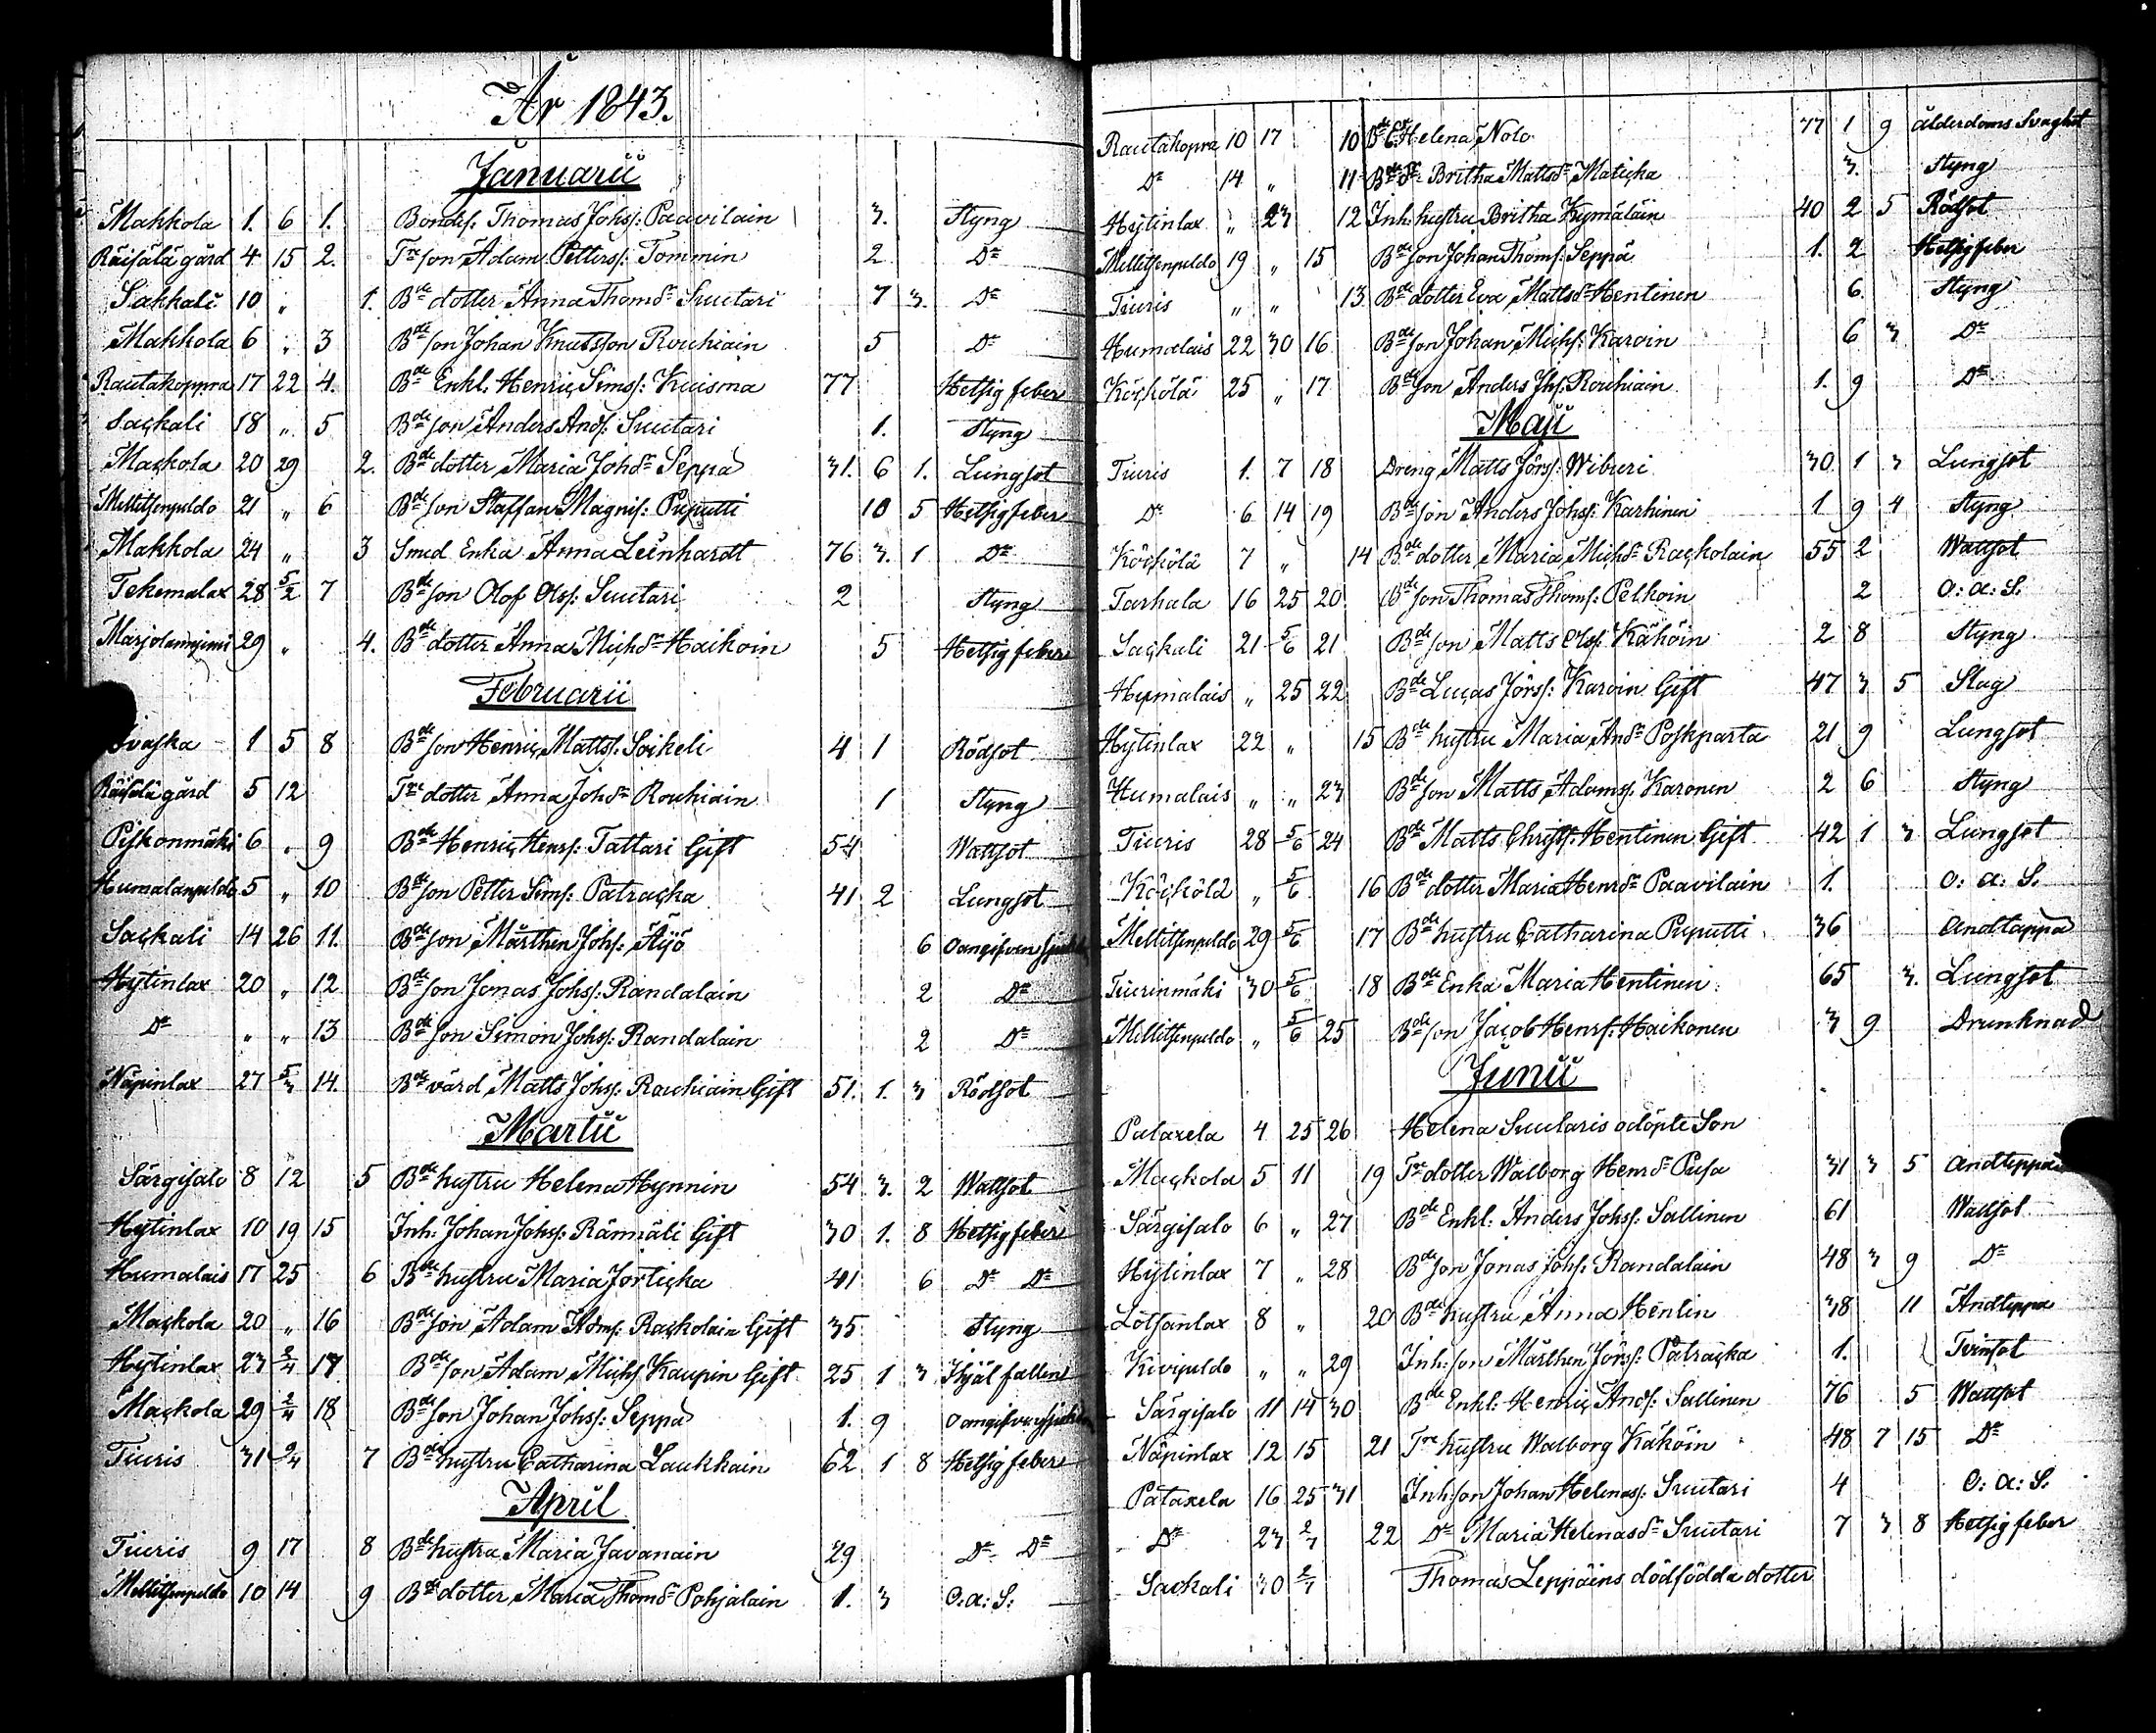 År 1843.
Januarii
Makkola 1. 6 1. Bondes: Thomas Johss: Paavilain 3. Styng
Räisälä gård 4 15 2. Tre son Adam Petterss: Tommin 2 Do
Sakkali 10 " 1. Bde dotter Anna Thomdr Suutari 7 3. Do
Makkola 6 " 3 Bde son Johan Knutsson Rouhiain 5 Do
Rautakoppra 17 22 4. Bde Enkl. Henric Simss: Kuisma 77 Hetsig feber
Sackali 18 " 5 Bde son Anders Ands: Suutari 1. Styng
Mackola 20 29 2. Bde dotter Maria Johdr Seppä 31. 6 1. Lungsot
Mellitsenpeldo 21 " 6 Bde son Staffan Magnis: Puputti 10 5 Hetsig feber
Makkola 24 " 3 Smed Enka Anna Leinhardt 76 3. 1 Do
Tekemalax 28 5/2 7 Bde son Olof Olss: Suutari 2 Styng
Marjolanniemi 29 " 4. Bde dotter Anna Michdr Haikoin 5 Hetsig feber
Februarii
1 5 8 Bde son Henric Mattss: Soikeli 4 1 Rödsot
Räisälä gård 5 12 Tre dotter Anna Johdr Rouhiain 1 Styng
Piskonmäki 6 " 9 Bde Henric Henrs: Tattari Gift 54 Wattsot
Humalanpeldo 5 " 10 Bde son Petter Simss: Patracka 41 2 Lungsot
Sackali 14 26 11. Bde son Mårthen Johs: Äijö 6 Oangifven
Hytinlax 20 " 12 Bde son Jonas Johss: Randalain 2 Do
Do " " 13 Bde son Simon Johss: Randalain 2 Do
Näpinlax 27 5/3 14. Bde värd Matts Johss: Rouhiain Gift 51. 1. 3 Rödsot
Martii
Särgisalo 8 12 5 Bde hustru Helena Hynnin 54 3. 2 Wattsot
Hytinlax 10 19 15 Inh: Johan Johss: Rämäli Gift 30 1. 8 Hetsig feber
Humalais 17 25 6 Bde hustru Maria Jorticka 41 6 Do Do
Mackola 20 " 16 Bde son Adam Adms: Rackolain Gift 35 Styng
Hytinlax 23 2/4 17 Bde son Adam Michs Kaupin Gift 25 1 3 Ihjäl fallen
Mackola 29 2/4 18 Bde son Johan Johss: Seppä 1. 9
Tiuris 31 2/4 7 Bde hustru Catharina Laukkain 62 1 8 Hetsig feber
April
Tiuris 9 17 8 Bde hustru Maria Javanain 29 Do Do
Mellitsenpeldo 10 14 9 Bde dotter Maria Thomdr Pohjalain 1. 3 O. a: S:
Rautakopra 10 17 10 Helena Nolo 77 1 9 Ålderdoms Svaghet
Do 14 " 11 Bde dr Britha Mattsdr Maticka 3. Styng
Hytinlax " 23 12 Inh. hustru Britha Kymäläin 40 2 5 Rödsot
Mellitsenpeldo 19 " 15 Bde son Johan Thoms: Seppä 1. 2 Hetsig feber
Tiuris " " 13 Bde dotter Eva Mattsdr Hentinen 6. Styng
Humalais 22 30 16 Bde son Johan Michs: Karoin 6 3 Do
Köckölä 25 " 17 Bde son Anders Jhs: Rouhiain 1. 9 Do
Maji
Tiuris 1. 7 18 Dreng Matts Jörs: Wiburi 30 1 3 Lungsot
Do 6 14 19 Bde son Anders Johss: Karhinen 1 9 4 Styng
Köckölä 7 " 14 Bde dotter Maria Michdr Rackolain 55 2 Wattsot
Tarhala 16 25 20 Bde son Thomas Thoms: Pelkoin 2 O: a: S.
Sackali 21 5/6 21 Bde son Matts Olss: Käköin 2 8 Styng
Humalais " 25 22 Bde Lucas Jörss: Karoin Gift 47 3 5 Slag
Hytinlax 22 " 15 Bde hustru Maria Andr Poskparta 21 9 Lungsot
Humalais " " 23 Bde son Matts Adamss: Karonen 2 6 Styng
Tiuris 28 5/6 24 Bde Matts Christs: Hentinen Gift 42 1 3 Lungsot
Köckölä " 5/6 16 Bde dotter Maria Henrdr Paavilain 1. O: a: S.
Mellitsenpeldo 29 5/6 17 Bde hustru Catharina Puputti 36 Andtäppa
Tiurinmäki 30 5/6 18 Bde Enka Maria Hentinen 65 3. Lungsot
Mellitsenpeldo " 5/6 25 Bde son Jacob Henrs: Haikonen 3 9 Drunknad
Junii
Pataxela 4 25 26 Helena Suutaris odöpte Son
Mackola 5 11 19 Tre dotter Walborg Henrdr Pusa 31 3 5 Andteppa
Särgisalo 6 " 27 Bde Enkl: Anders Johss: Sallinen 61 Wattsot
Hytinlax 7 " 28 Bde son Jonas Johs: Randalain 48 3 9 Do
Lötsänlax 8 " 20 Bde hustru Anna Hentin 38 11 Andteppa
Kivipeldo " " 29 Inh: son Mårthen Jörss: Patracka 1. Tvinsot
Särgisalo 11 14 30 Bde Enkl: Henric Ands: Sallinen 76 5 Wattsot
Näpinlax 12 15 21 Tre hustru Walborg Käköin 48 7 15 Do
Pataxela 16 25 31 Inh: son Johan Helenass: Suutari 4 O: a: S.
Do 23 2/7 22 Do Maria Helenasdr Suutari 7 3 8 Hetsig feber
Sackali 30 2/7 Thomas Leppäins dödfödda dotter